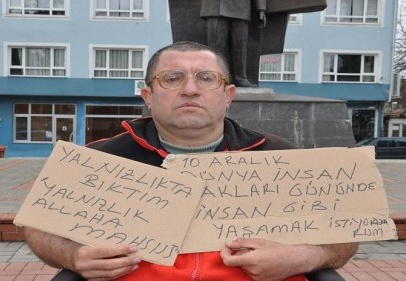 YALNIZLIKTA
BIKTIM
YALNIZLIK
ALLAHA
MAHSUS
10 ARALIK
DÜNYA İNSAN
HAKLARI GÜNÜNDE
İNSAN GİBİ
YAŞAMAK İSTİYO
RUM